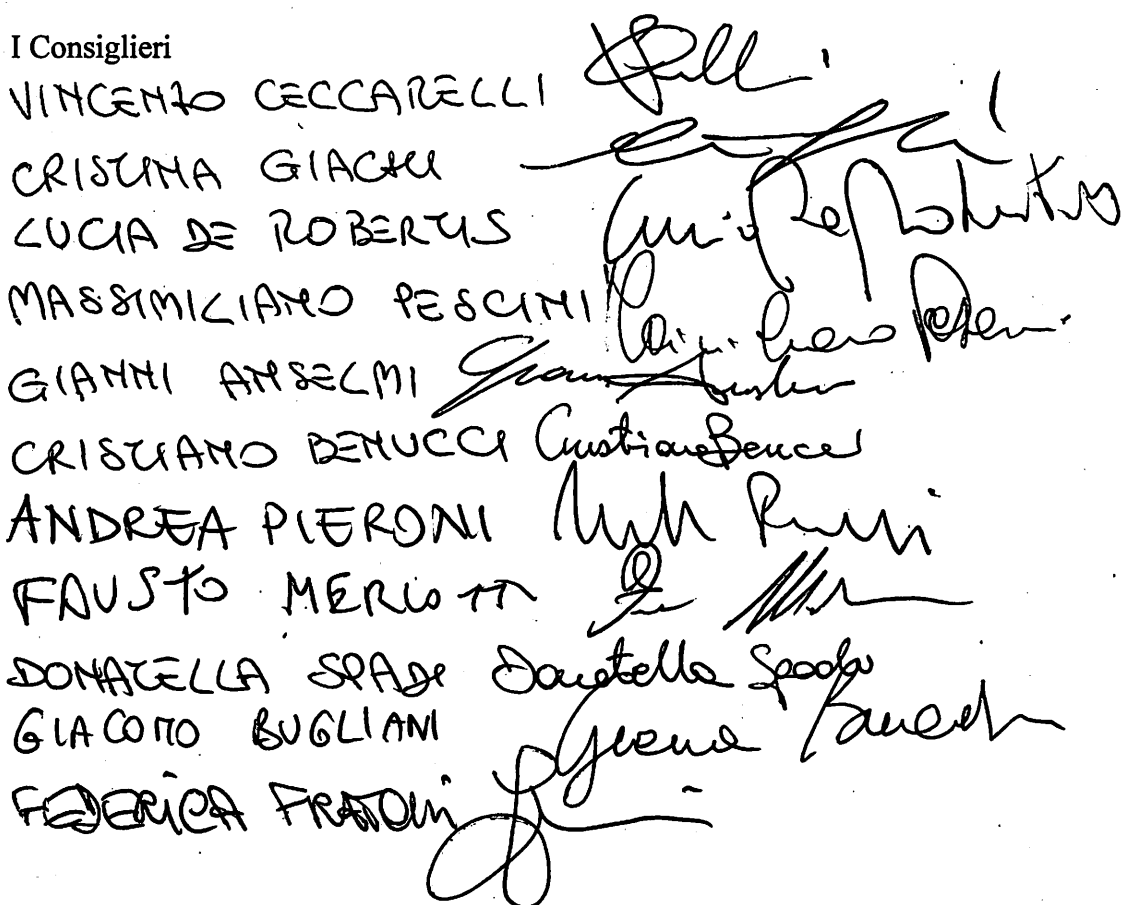 I Consiglieri
VINCENZO CECCARELLI
CRISTINA GIACHI
LUCIA DE ROBERTIS Lucia De Robertis
MASSIMILIANO PESCINI
GIANNI ANSELMI
CRISTIANO BENUCCI Cristiano Benucci
ANDREA PIERONI
FAUSTO MERLOTTI
DONATELLA SPADI Donatella Spadi
GIACOMO BUGLIANI
FEDERICA FRATONI